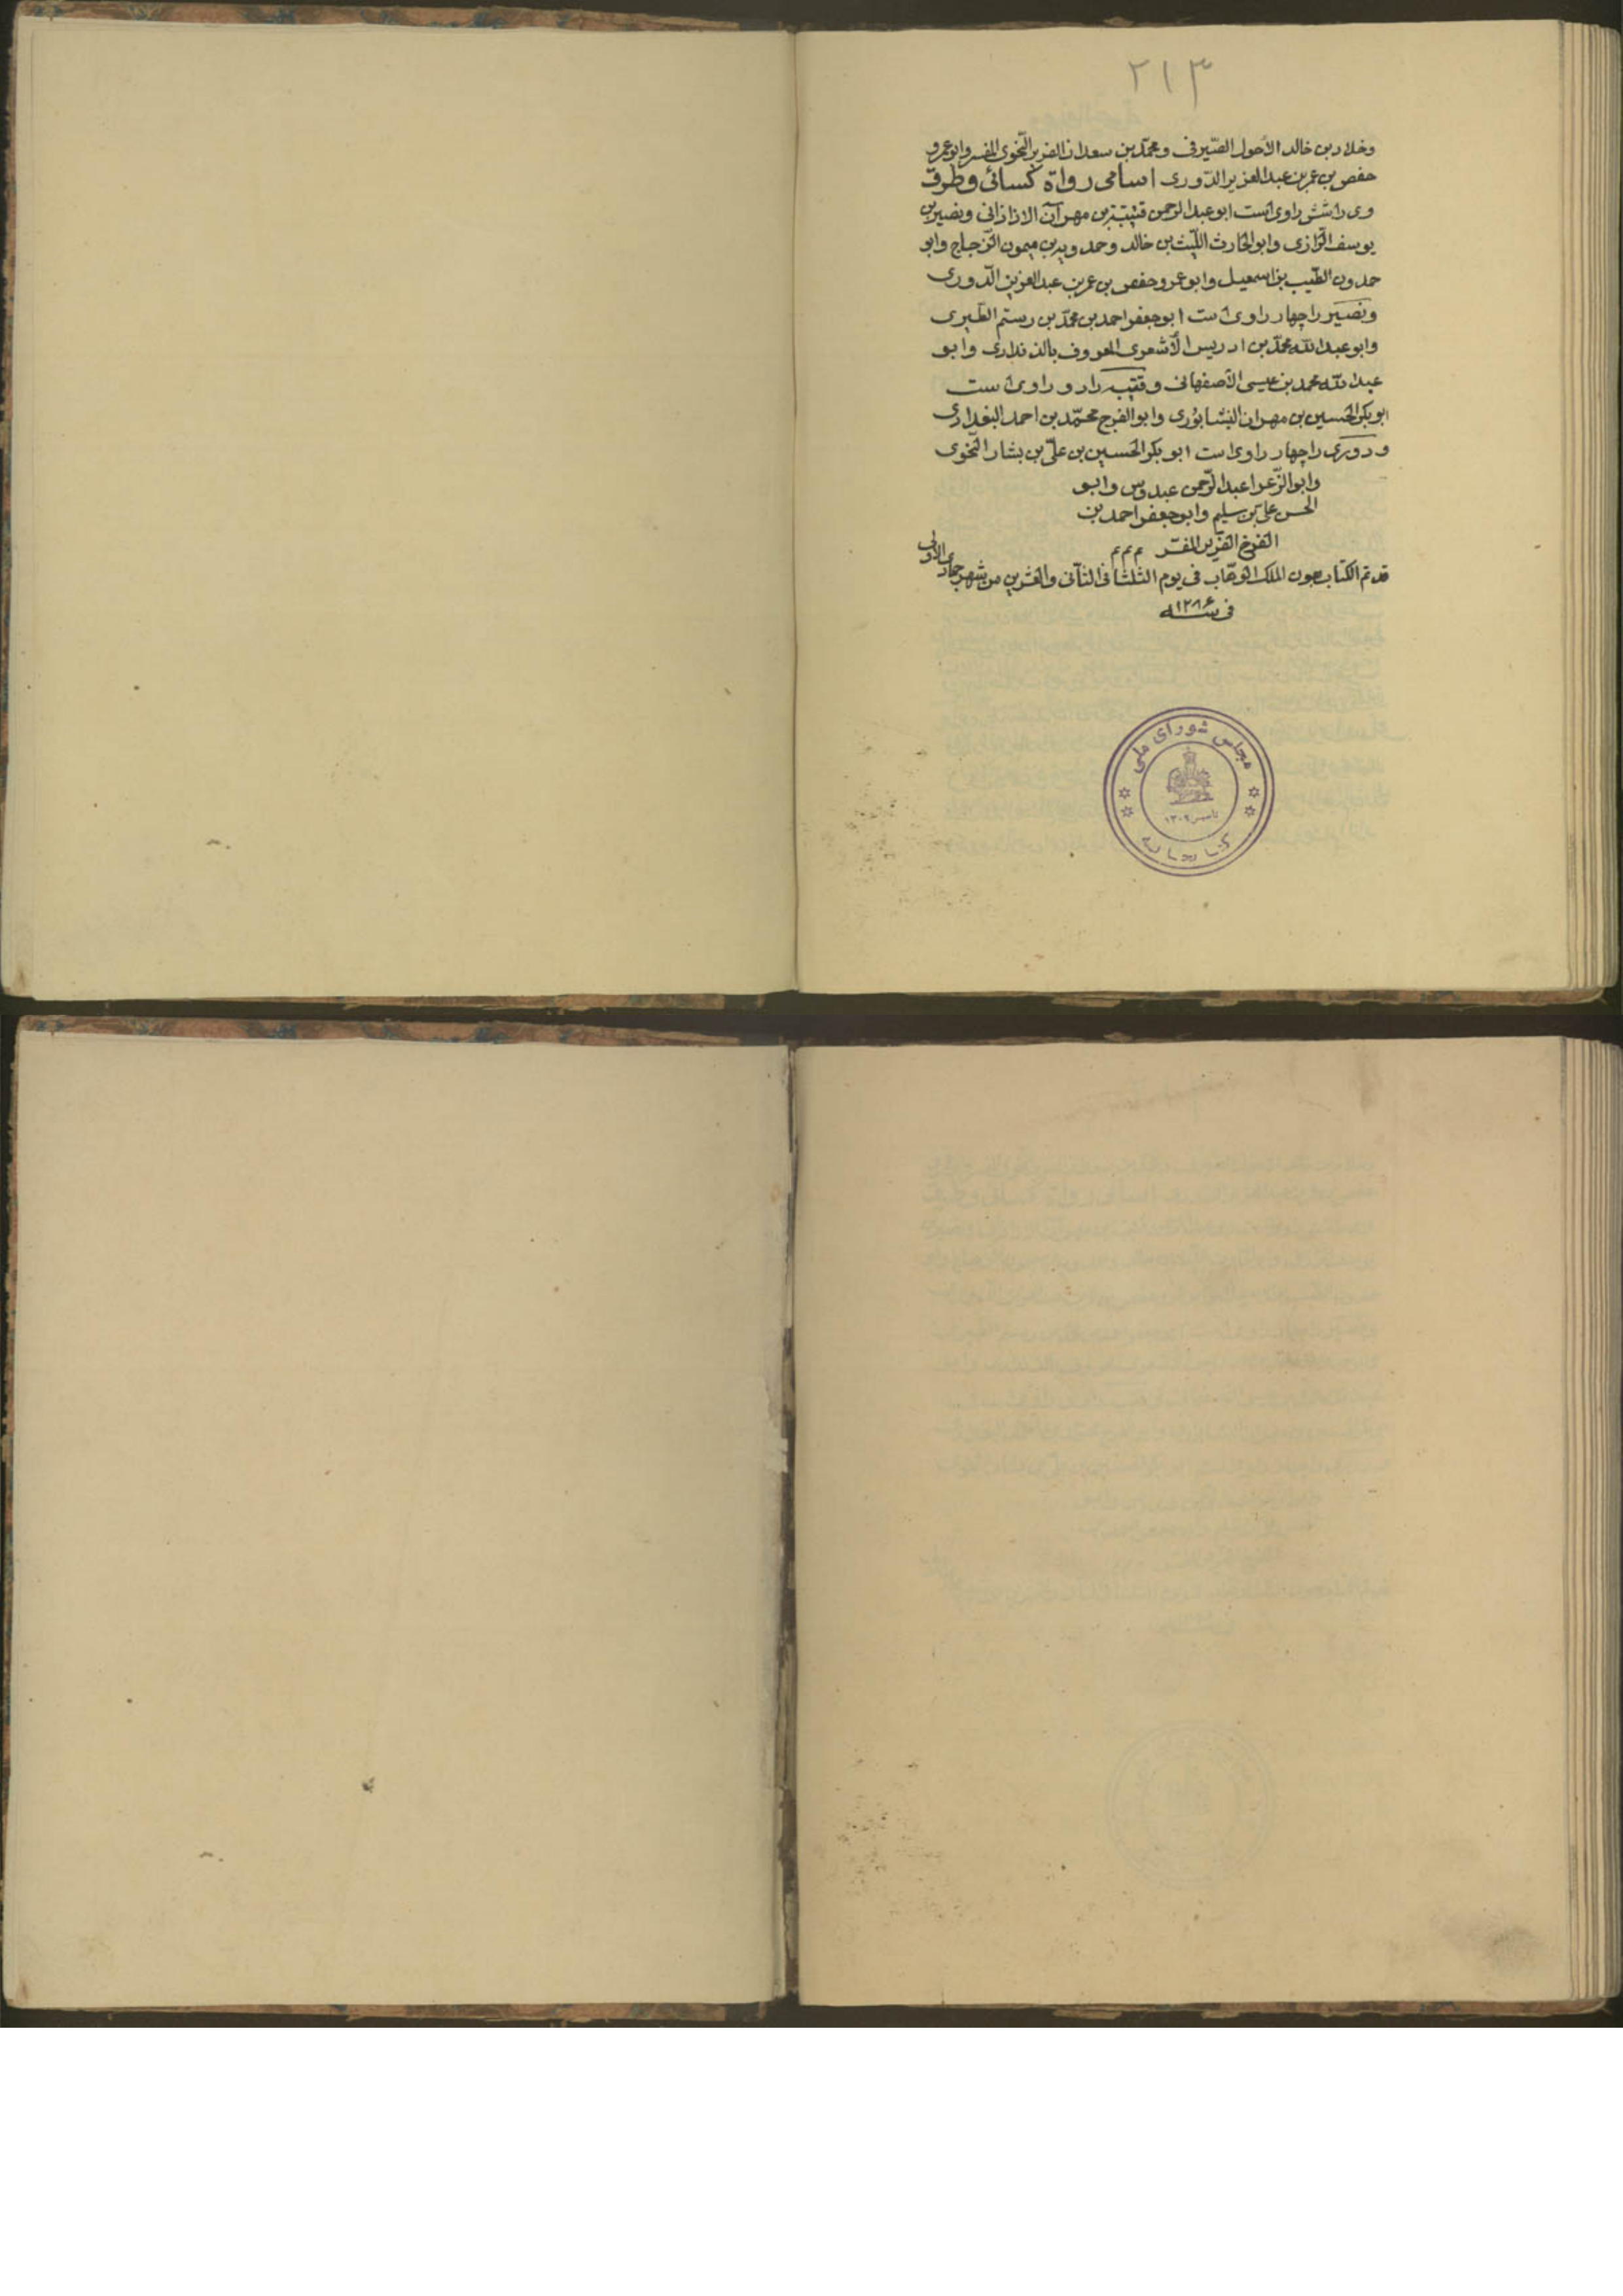 ٢١٣
وخلاد بن خالد الأحول الصّیرفی ومحمّد بن سعدان الضریر النّحوی المفسر وابوعمرو
حفص بن عمر بن عبدالعزیز الدّوری اسامی رواة کسائی وطرق
وی راشش راوی است ابوعبدالرحمن قتیبة بن مهرآن الازاذانی ونصیر بن
یوسف الرّازی وابوالحارث اللّیث بن خالد وحمدویه بن میمون الزّجاج وابو
حمدون الطّیب بن اسمعیل وابوعمرو حفص بن عمر بن عبدالعزیز الدّوری
ونصیر راچهار راوی است ابوجعفر احمد بن محمّد بن رستم الطّبری
وابوعبدالله محمّد بن ادریس الأشعری المعروف وابو
عبدالله محمد بن عیسی الأصفهانی وقتیبه رادو راوی است
ابوبکر الحسین بن مهران النشابوری وابوالفرج محمّد بن احمد البغدادی
ودوری راچهار راوی است ابوبکر الحسین بن علیّ بن بشار النّحوی
وابوالزّعرا عبدالرّحمن عبدوس وابو
الحسن علی بن سلیم وابوجعفر احمد بن
الفرخ الضّریر المفسّر م م م
قد تم الکتاب بعون الملک الوهّاب فی یوم الثلثا فی الثانی والعشرین من شهر جمادی الاولی
فی سنه ١٢٨۶
مجلس شورای ملی
تاسیس ١٣٠٢
کتابخانه